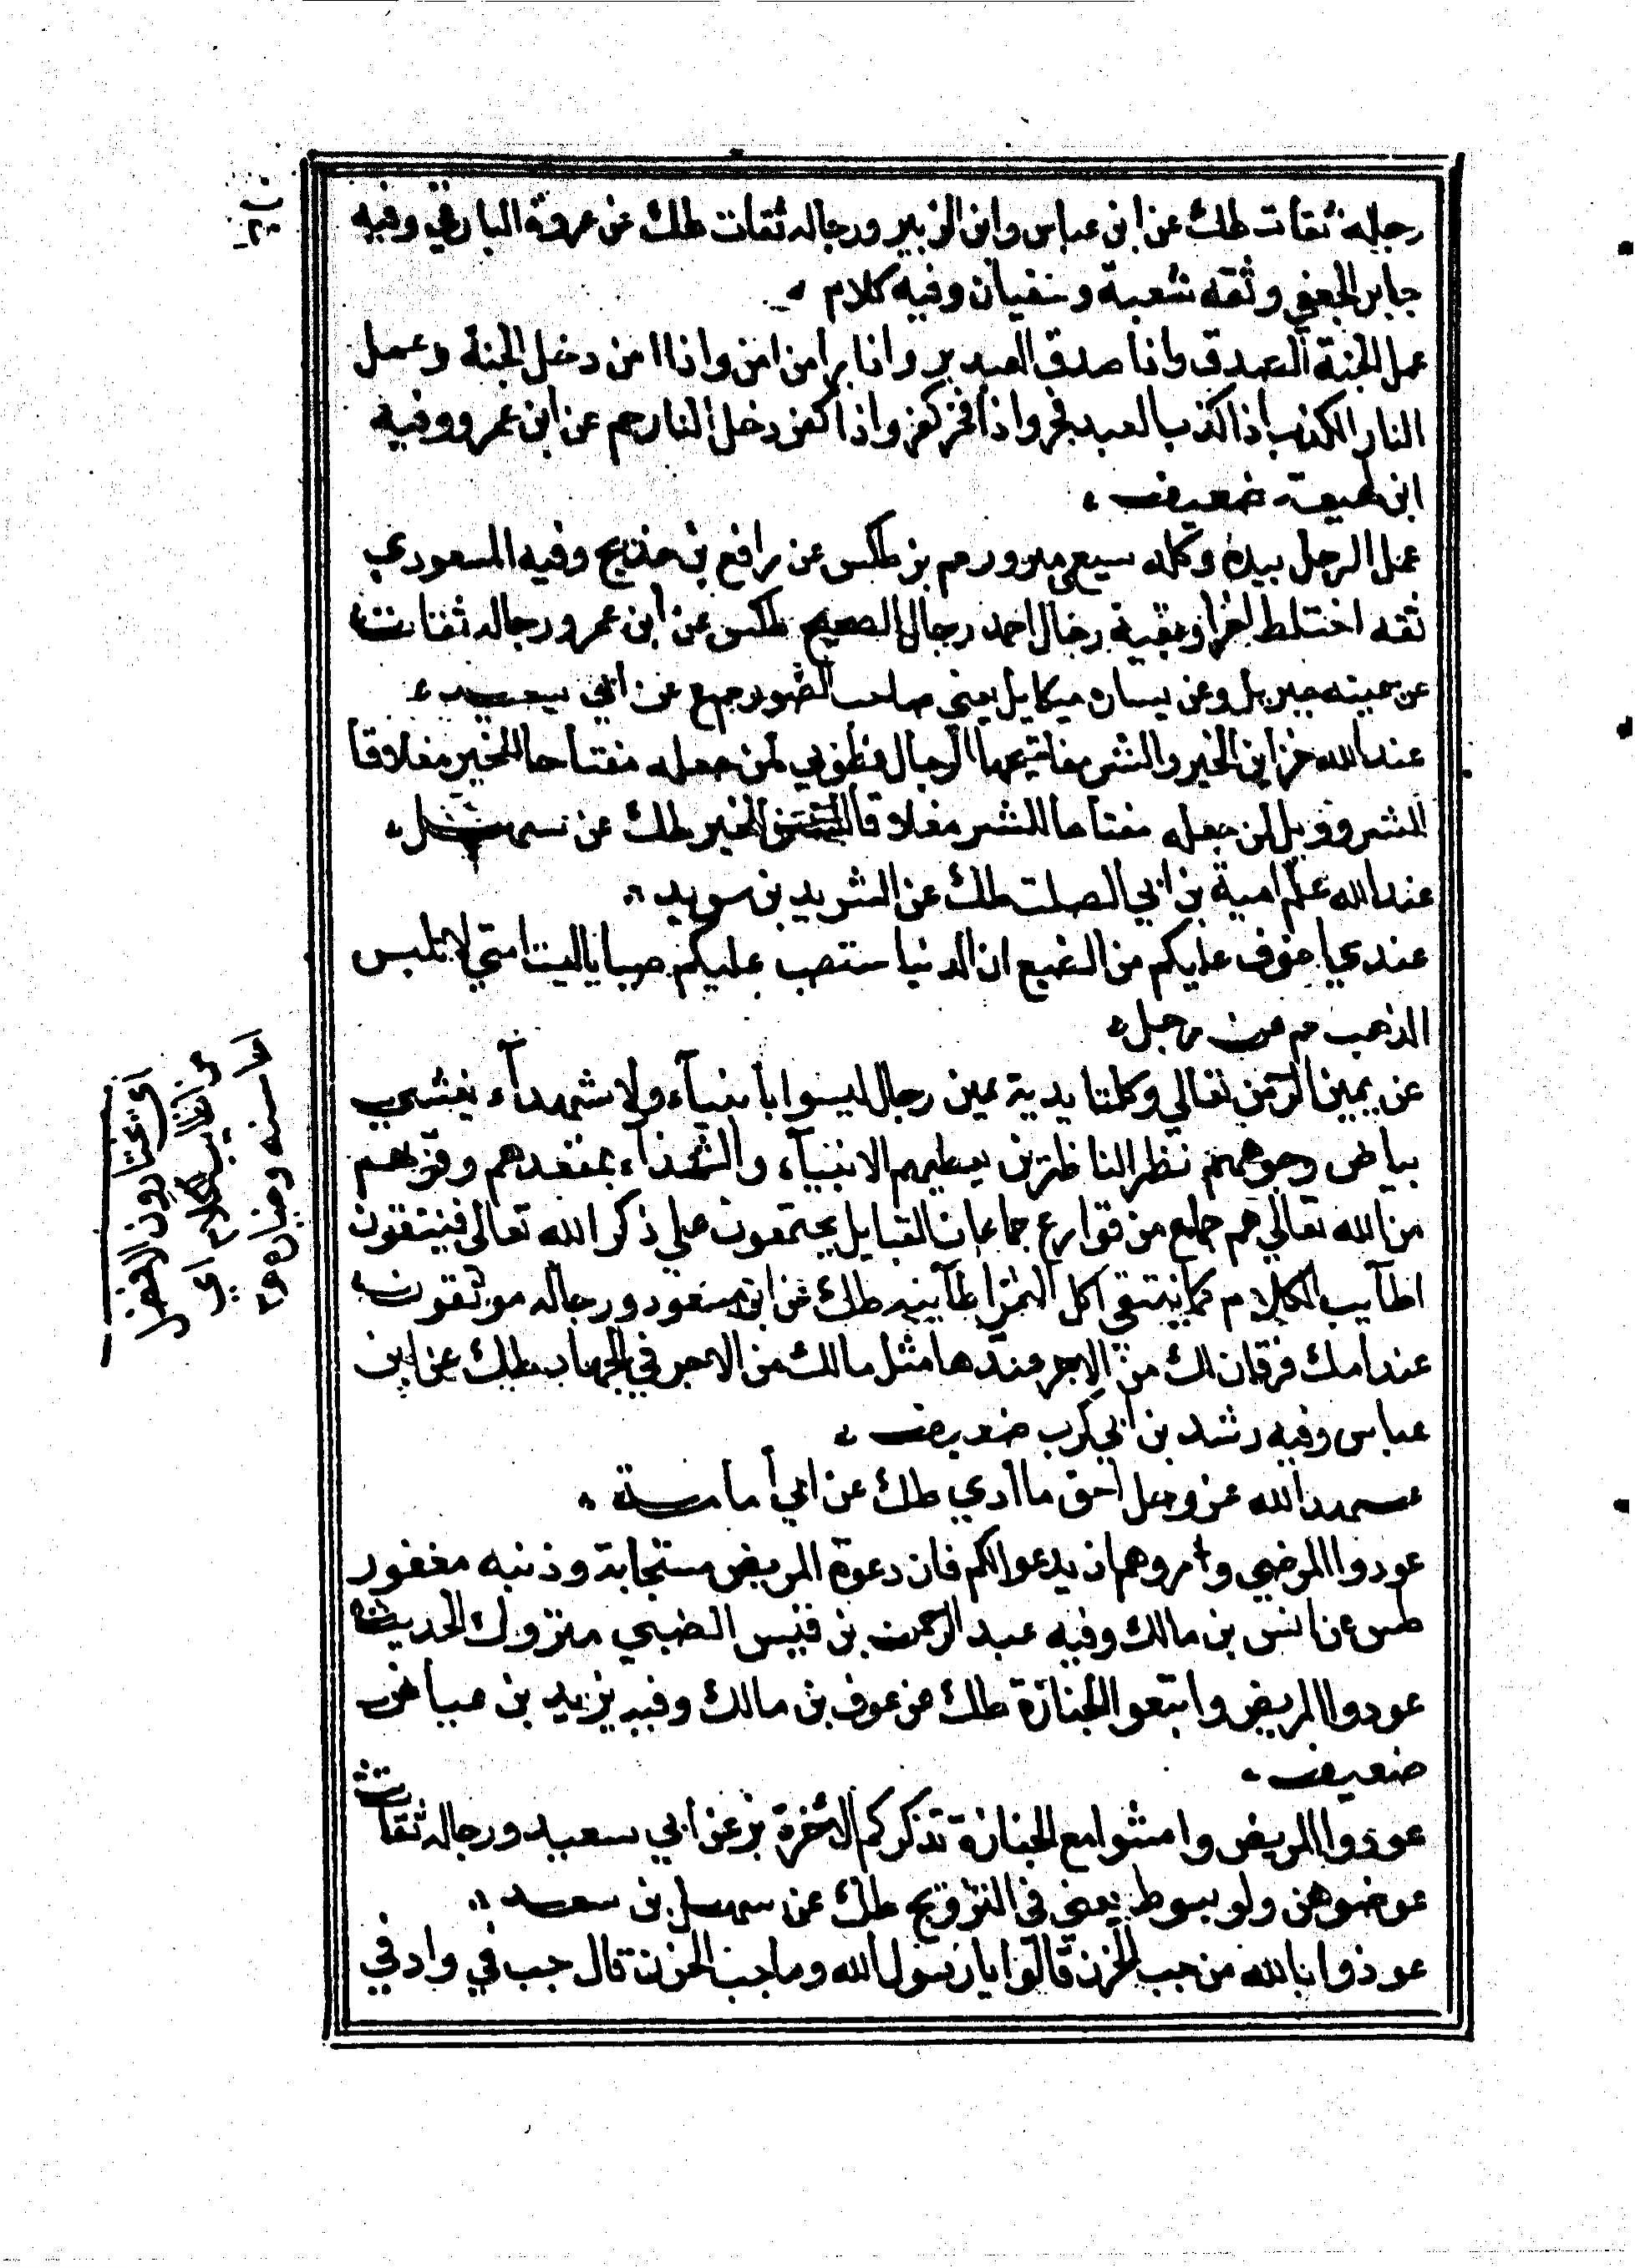 رجاله ثقات طك عن ابن عباس وابن الزبير ورجاله ثقات طك عن عروة البارقي وفيه
جابر الجعفي وثقه شعبة وسفيان وفيه كلام
عمل الجنة الصدق واذا صدق العبد بر واذا بر امن امن واذا امن دخل الجنة وعمل
النار الكذب اذا كذب العبد فجر واذا فجر كفر واذا كفر دخل النار حم عن ابن عمرو وفيه
ابن لهيعة ضعيف
عمل الرجل بيده وكله سيع مبرور حم بز طكس عن رافع بن خديج وفيه المسعودي
ثقه اختلط اخرا وبقية رجال احمد رجال الصحيح طكس عن ابن عمر ورجاله ثقات
عن يمينه جبريل وعن يساره ميكايل يعني صاحب الصور جمع عن ابي سعيد
عند الله خزاين الخير والشر مفاتيحها الرجال فطوبي لمن جعله مفتاحا للخير مغلاقا
للشر وويل لمن جعله مفتاحا للشر مغلاقا للخير طك عن سهل
عند الله علم امية بن ابي الصلت طك عن الشريد بن سويد
عندي اخوف عليكم من الضبع ان الدنيا ستصب عليكم صبا ياليت امتي لا تلبس
الذهب حم عن رجل
عن يمين الرحمن تعالي وكلتا يديه يمين رجال ليسوا بانبيآء ولا شهدآء يغشي
بياض وجوههم نظر الناظرين يغبطهم الانبيآء والشهدآء بمقعدهم وقربهم
من الله تعالي هم جماع من قوارع جماعات القبايل يجتمعون علي ذكر الله تعالى فينتقون
اطآيب الكلام كما ينتقي اكل التمر اطآيبه طك عن ابن مسعود ورجاله موثقون
عند امك فرقان لك من الاجر عندها مثل مالك من الاجر في الجهاد طك عن ابن
عباس وفيه رشد بن ابي كرب ضعيف
عهد الله عز وجل احق ما ادي طك عن ابي أمامة
عودوا المرضي وامروهم ان يدعوا لكم فان دعوة المريض مستجابة وذنبه مغفور
طس عن انس بن مالك وفيه عبد الرحمن بن قيس الضبي متروك الحديث
عودوا المريض واتبعوا الجنازة طك عن عوف بن مالك وفيه يزيد بن عياض
ضعيف
عودوا المريض وامشوا مع الجنازة تذكركم الاخرة بز عن ابي سعيد ورجاله ثقات
عوضوهن ولو بسوط يعني في التزويج طك عن سهل بن سعد
عوذوا بالله من جب الحزن قالوا يا رسول الله وما جب الحزن قال جب في واد في